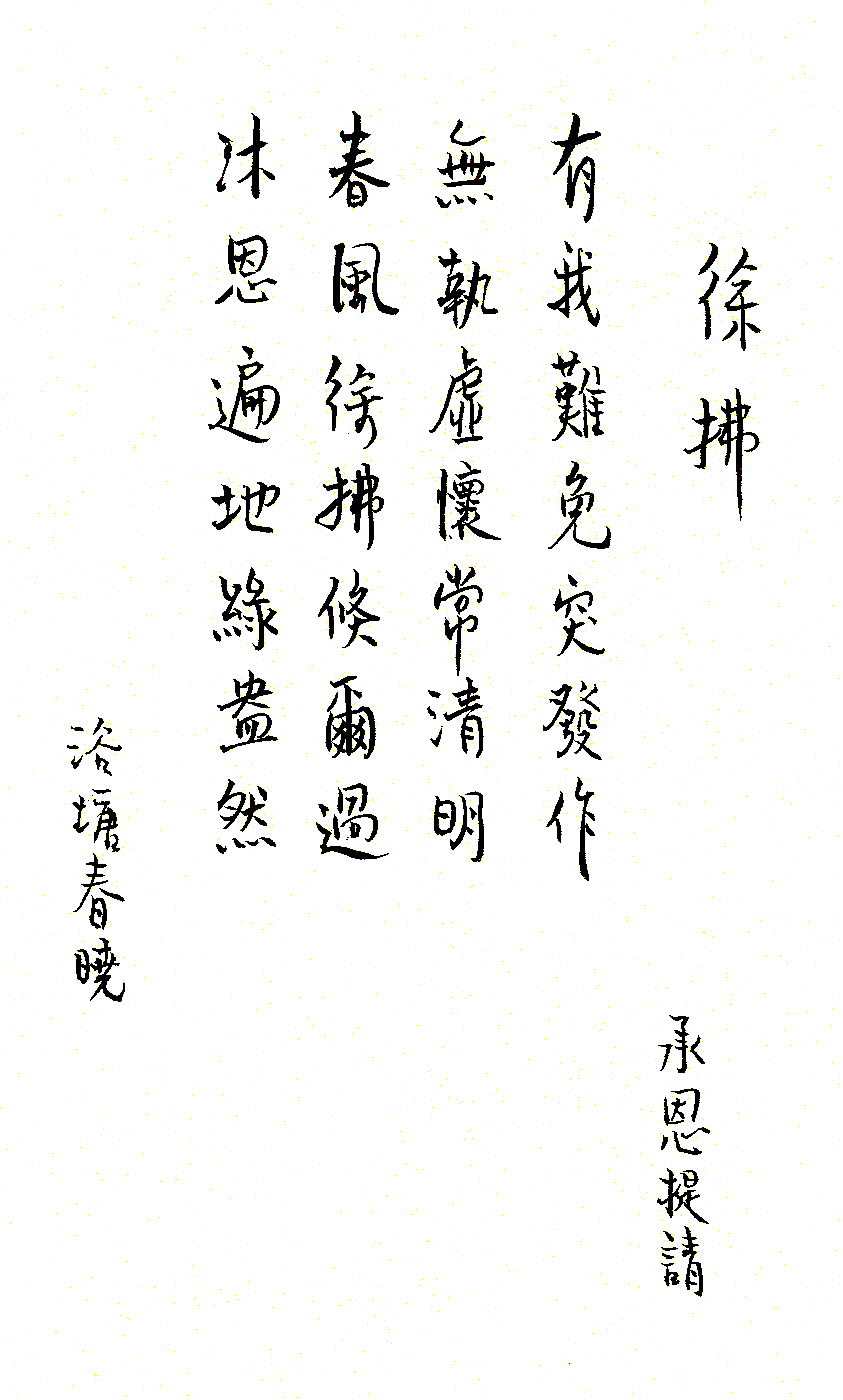 徐拂
承恩提請
有我難免突發作
無執虛懷常清明
春風徐拂倏爾過
沐恩遍地綠盎然
浴塘春曉